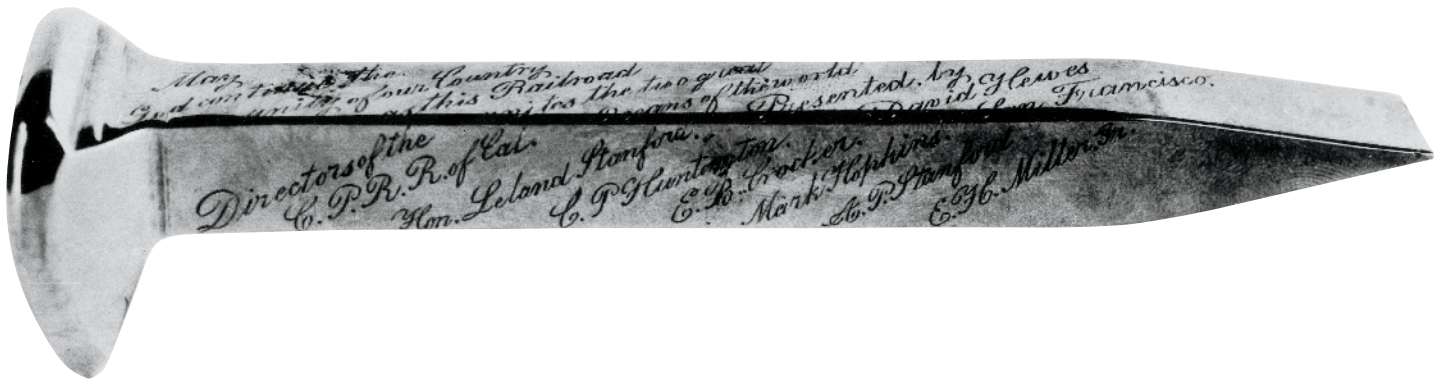 May
God continue the
unity of our Country
as this Railroad
unites the two great
Oceans of the world
Presented by
David Hewes
San Francisco.
Directors of the
C. P. R. R. of Cal.
Hon. Leland Stanford.
C. P. Huntington.
E. B. Crocker.
Mark Hopkins.
A. P. Stanford
E. H. Miller Jr.